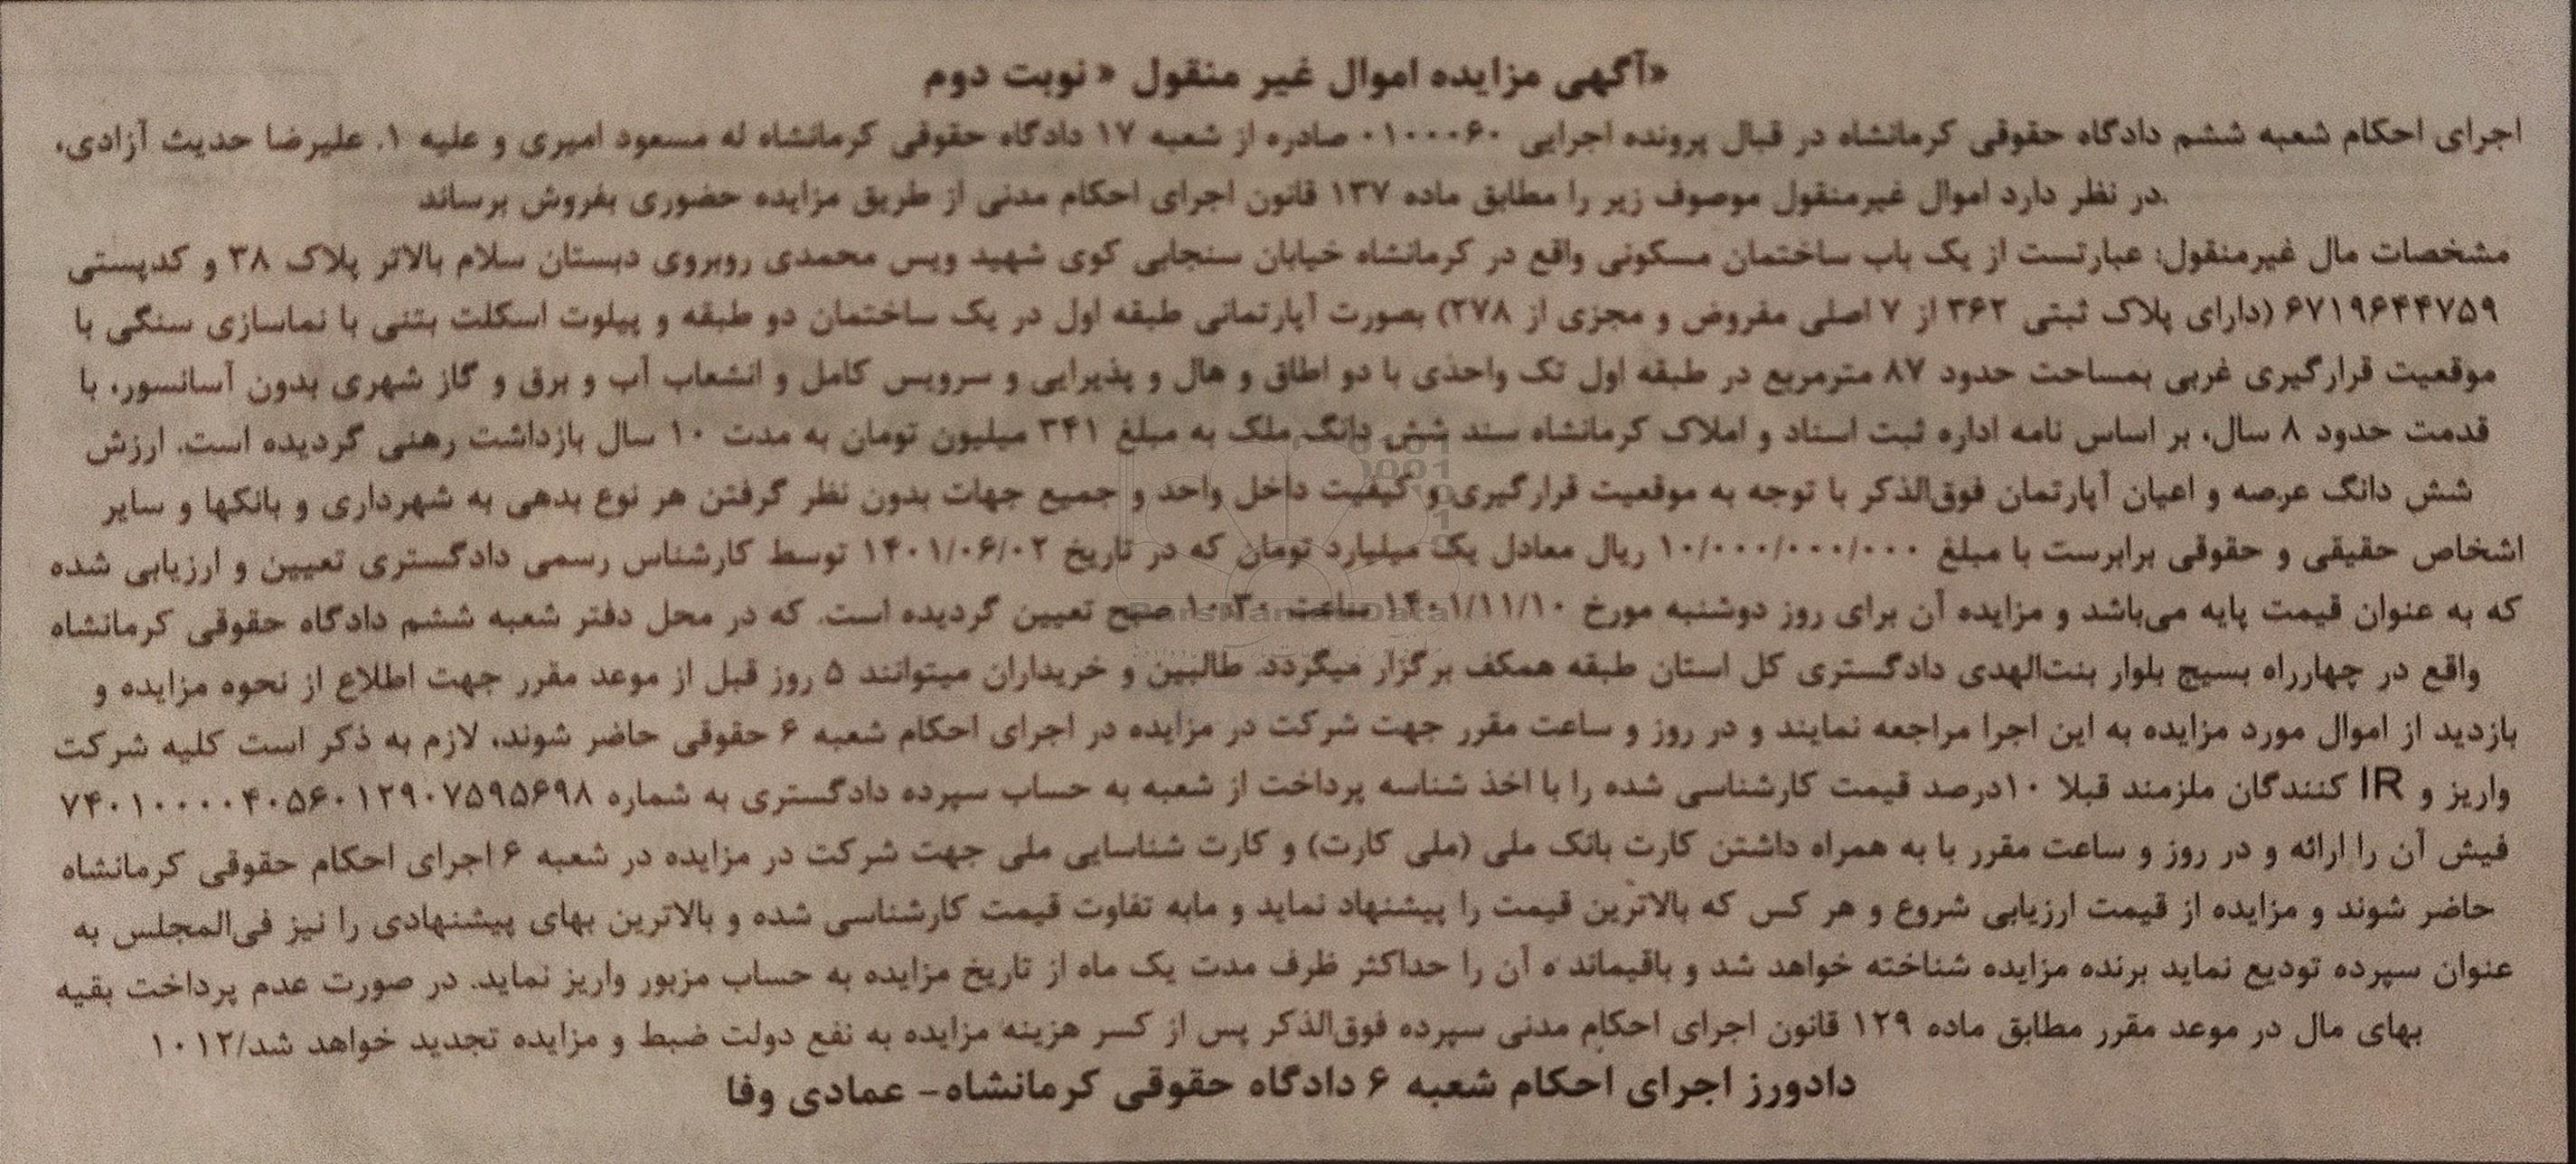 «آگهی مزایده اموال غیر منقول « نوبت دوم
اجرای احکام شعبه ششم دادگاه حقوقی کرمانشاه در قبال پرونده اجرایی ۰۱۰۰۰۶۰ صادره از شعبه ۱۷ دادگاه حقوقی کرمانشاه له مسعود امیری و علیه ۱. علیرضا حدیث آزادی،
.در نظر دارد اموال غیرمنقول موصوف زیر را مطابق ماده ۱۳۷ قانون اجرای احکام مدنی از طریق مزایده حضوری بفروش برساند
مشخصات مال غیرمنقول: عبارتست از یک باب ساختمان مسکونی واقع در کرمانشاه خیابان سنجابی کوی شهید ویس محمدی روبروی دبستان سلام بالاتر پلاک ۳۸ و کدپستی
۶۷۱۹۶۴۴۷۵۹ (دارای پلاک ثبتی ۳۶۲ از ۷ اصلی مفروض و مجزی از ۲۷۸) بصورت آپارتمانی طبقه اول در یک ساختمان دو طبقه و پیلوت اسکلت بتنی با نماسازی سنگی با
موقعیت قرارگیری غربی بمساحت حدود ۸۷ مترمربع در طبقه اول تک واحدی با دو اطاق و هال و پذیرایی و سرویس کامل و انشعاب آب و برق و گاز شهری بدون آسانسور، با
قدمت حدود ۸ سال، بر اساس نامه اداره ثبت اسناد و املاک کرمانشاه سند شش دانگ ملک به مبلغ ۳۴۱ میلیون تومان به مدت ۱۰ سال بازداشت رهنی گردیده است. ارزش
شش دانگ عرصه و اعیان آپارتمان فوق‌الذکر با توجه به موقعیت قرارگیری و کیفیت داخل واحد و جمیع جهات بدون نظر گرفتن هر نوع بدهی به شهرداری و بانکها و سایر
اشخاص حقیقی و حقوقی برابرست با مبلغ ۱۰/۰۰۰/۰۰۰/۰۰۰ ریال معادل یک میلیارد تومان که در تاریخ ۱۴۰۱/۰۶/۰۲ توسط کارشناس رسمی دادگستری تعیین و ارزیابی شده
که به عنوان قیمت پایه می‌باشد و مزایده آن برای روز دوشنبه مورخ ۱۴۰۱/۱۱/۱۰ ساعت ۱۰:۳۰ صبح تعیین گردیده است. که در محل دفتر شعبه ششم دادگاه حقوقی کرمانشاه
واقع در چهارراه بسیج بلوار بنت‌الهدی دادگستری کل استان طبقه همکف برگزار میگردد. طالبین و خریداران میتوانند ۵ روز قبل از موعد مقرر جهت اطلاع از نحوه مزایده و
بازدید از اموال مورد مزایده به این اجرا مراجعه نمایند و در روز و ساعت مقرر جهت شرکت در مزایده در اجرای احکام شعبه ۶ حقوقی حاضر شوند، لازم به ذکر است کلیه شرکت
واریز و IR کنندگان ملزمند قبلا ۱۰درصد قیمت کارشناسی شده را با اخذ شناسه پرداخت از شعبه به حساب سپرده دادگستری به شماره ۷۴۰۱۰۰۰۰۴۰۵۶۰۱۲۹۰۷۵۹۵۶۹۸
فیش آن را ارائه و در روز و ساعت مقرر با به همراه داشتن کارت بانک ملی (ملی کارت) و کارت شناسایی ملی جهت شرکت در مزایده در شعبه ۶ اجرای احکام حقوقی کرمانشاه
حاضر شوند و مزایده از قیمت ارزیابی شروع و هر کس که بالاترین قیمت را پیشنهاد نماید و مابه تفاوت قیمت کارشناسی شده و بالاترین بهای پیشنهادی را نیز فی‌المجلس به
عنوان سپرده تودیع نماید برنده مزایده شناخته خواهد شد و باقیمانده آن را حداکثر ظرف مدت یک ماه از تاریخ مزایده به حساب مزبور واریز نماید. در صورت عدم پرداخت بقیه
بهای مال در موعد مقرر مطابق ماده ۱۲۹ قانون اجرای احکام مدنی سپرده فوق‌الذکر پس از کسر هزینه مزایده به نفع دولت ضبط و مزایده تجدید خواهد شد/۱۰۱۲
دادورز اجرای احکام شعبه ۶ دادگاه حقوقی کرمانشاه- عمادی وفا